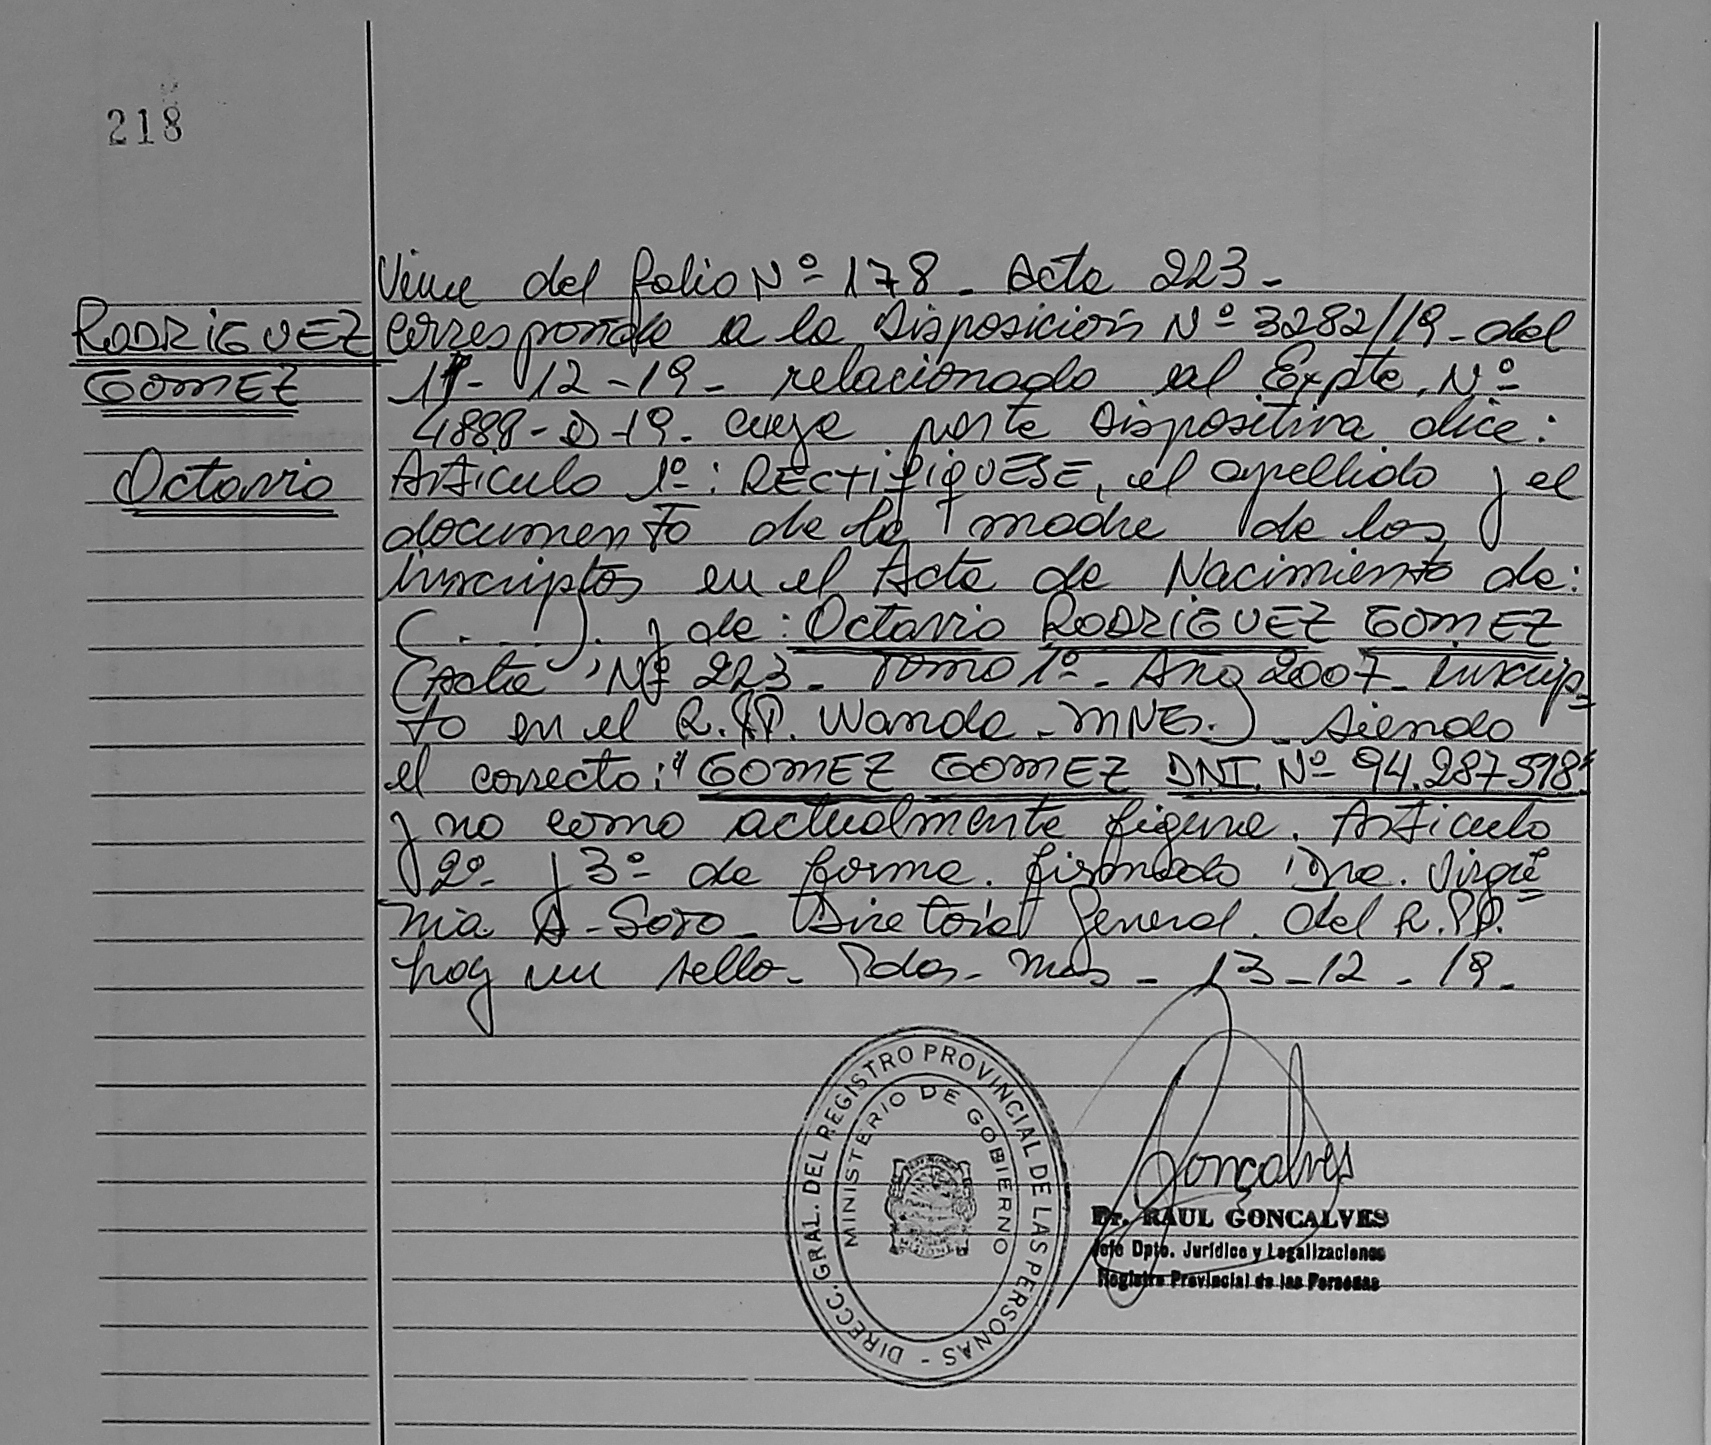 218
Viene del folio Nº 178 - Acta 223 -
RODRIGUEZ
corresponde a la Disposición Nº 3282/19 - del
GOMEZ
11 - 12 - 19 - relacionado al Expte. Nº
4888 - D - 19 - cuya parte dispositiva dice:
Octavio
Artículo 1º: RECTIFIQUESE, el apellido y el
documento de la madre de los
inscriptos en el Acta de Nacimiento de:
(...). y de: Octavio RODRIGUEZ GOMEZ
(Acta Nº 223 - Tomo 1º - Año 2007 - inscrip-
to en el R.P.P. Wanda - MNES.) - siendo
el correcto: "GOMEZ GOMEZ DNI. Nº 94.287.598"
y no como actualmente figura. Artículo
2º y 3º de forma. firmado Dra. Virgi=
nia A - Soto - Directora General. del R.P.P.
hay un sello - Pdas - Mnes - 13 - 12 - 19 -
DIRECC. GRAL. DEL REGISTRO PROVINCIAL DE LAS PERSONAS -
MINISTERIO DE GOBIERNO
Gonçalves
Dr. RAUL GONCALVES
Jefe Dpto. Jurídico y Legalizaciones
Registro Provincial de las Personas